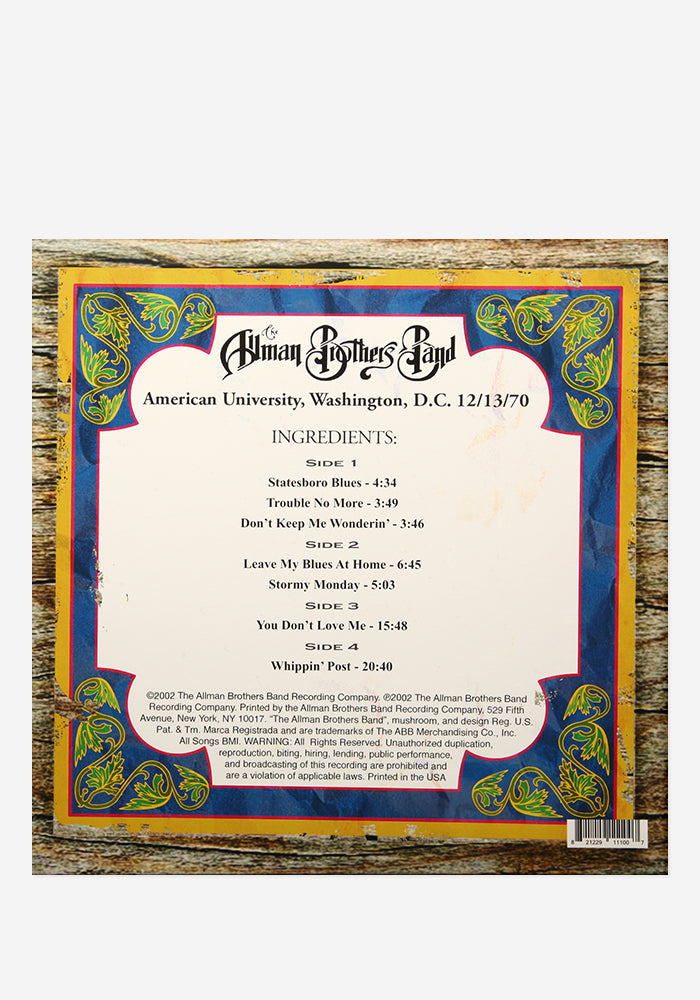 The
Allman Brothers Band
American University, Washington, D.C. 12/13/70
INGREDIENTS:
SIDE 1
Statesboro Blues - 4:34
Trouble No More - 3:49
Don't Keep Me Wonderin' - 3:46
SIDE 2
Leave My Blues At Home - 6:45
Stormy Monday - 5:03
SIDE 3
You Don't Love Me - 15:48
SIDE 4
Whippin' Post - 20:40
©2002 The Allman Brothers Band Recording Company. ℗2002 The Allman Brothers Band
Recording Company. Printed by the Allman Brothers Band Recording Company, 529 Fifth
Avenue, New York, NY 10017. "The Allman Brothers Band", mushroom, and design Reg. U.S.
Pat. & Tm. Marca Registrada and are trademarks of The ABB Merchandising Co., Inc.
All Songs BMI. WARNING: All Rights Reserved. Unauthorized duplication,
reproduction, biting, hiring, lending, public performance,
and broadcasting of this recording are prohibited and
are a violation of applicable laws. Printed in the USA
8 21229 11100 7